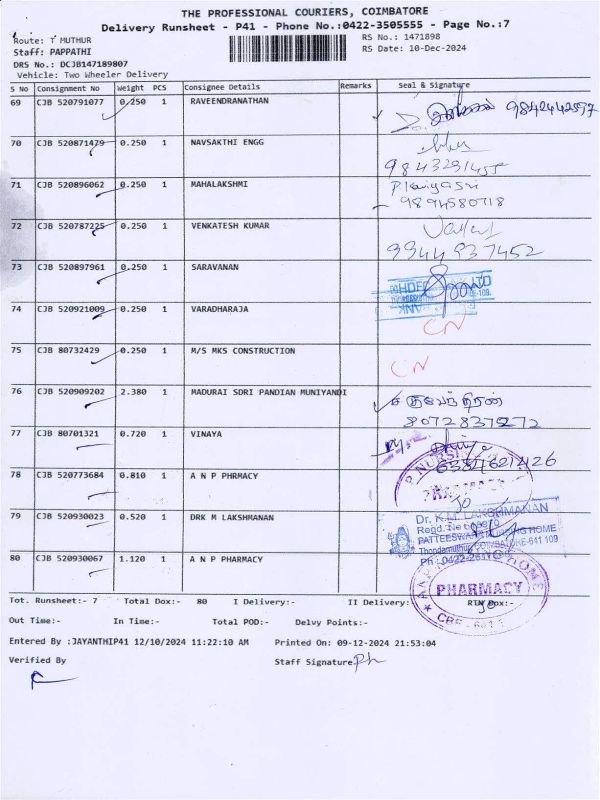 THE PROFESSIONAL COURIERS, COIMBATORE
Delivery Runsheet - P41 - Phone No.:0422-3505555 - Page No.:7
Route: T MUTHUR
RS No.: 1471898
Staff: PAPPATHI
RS Date: 10-Dec-2024
DRS No.: DCJB147189807
Vehicle: Two Wheeler Delivery
S No Consignment No Weight PCS Consignee Details Remarks Seal & Signature
69 CJB 520791077 0.250 1 RAVEENDRANATHAN
70 CJB 520871479 0.250 1 NAVSAKTHI ENGG
9843291455
71 CJB 520896062 0.250 1 MAHALAKSHMI
9894580718
72 CJB 520787225 0.250 1 VENKATESH KUMAR
9944937452
73 CJB 520897961 0.250 1 SARAVANAN
74 CJB 520921009 0.250 1 VARADHARAJA
CN
75 CJB 80732429 0.250 1 M/S MKS CONSTRUCTION
CN
76 CJB 520909202 2.380 1 MADURAI SDRI PANDIAN MUNIYANDI
8072837272
77 CJB 80701321 0.720 1 VINAYA
6384621426
78 CJB 520773684 0.810 1 A N P PHRMACY
79 CJB 520930023 0.520 1 DRK M LAKSHMANAN
Dr. K.M. LAKSHMANAN
PATTEESWARA NURSING HOME
80 CJB 520930067 1.120 1 A N P PHARMACY
PHARMACY
Tot. Runsheet:- 7 Total Dox:- 80 I Delivery:- II Delivery:- RTN Dox:-
Out Time:- In Time:- Total POD:- Delvy Points:-
Entered By :JAYANTHIP41 12/10/2024 11:22:10 AM Printed On: 09-12-2024 21:53:04
Verified By Staff Signature